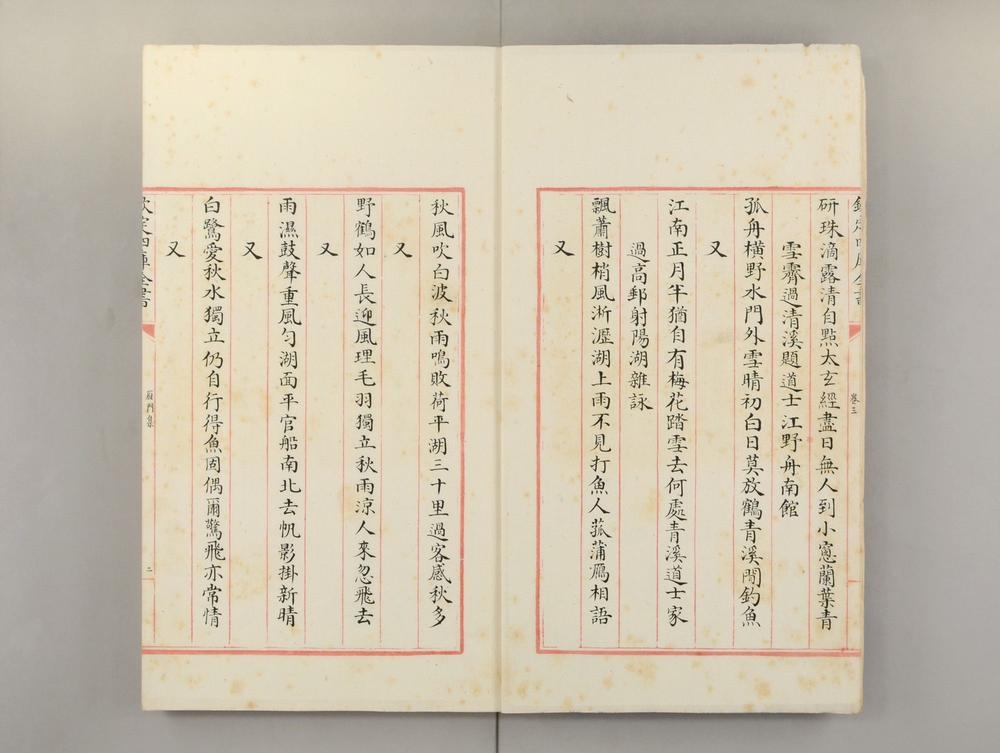 欽定四庫全書
卷三
研珠滴露清自點太玄經盡日無人到小窻蘭葉青
雪霽過清溪題道士江野舟南館
孤舟橫野水門外雪晴初白日莫放鶴青溪閒釣魚
又
江南正月半猶自有梅花踏雪去何處青溪道士家
過高郵射陽湖雜詠
飄蕭樹梢風淅瀝湖上雨不見打魚人菰蒲鴈相語
又
秋風吹白波秋雨鳴敗荷平湖三十里過客感秋多
又
野鶴如人長迎風理毛羽獨立秋雨涼人來忽飛去
又
雨濕鼓聲重風勻湖面平官船南北去帆影掛新晴
又
白鷺愛秋水獨立仍自行得魚固偶爾驚飛亦常情
又
欽定四庫全書
鴈門集
二